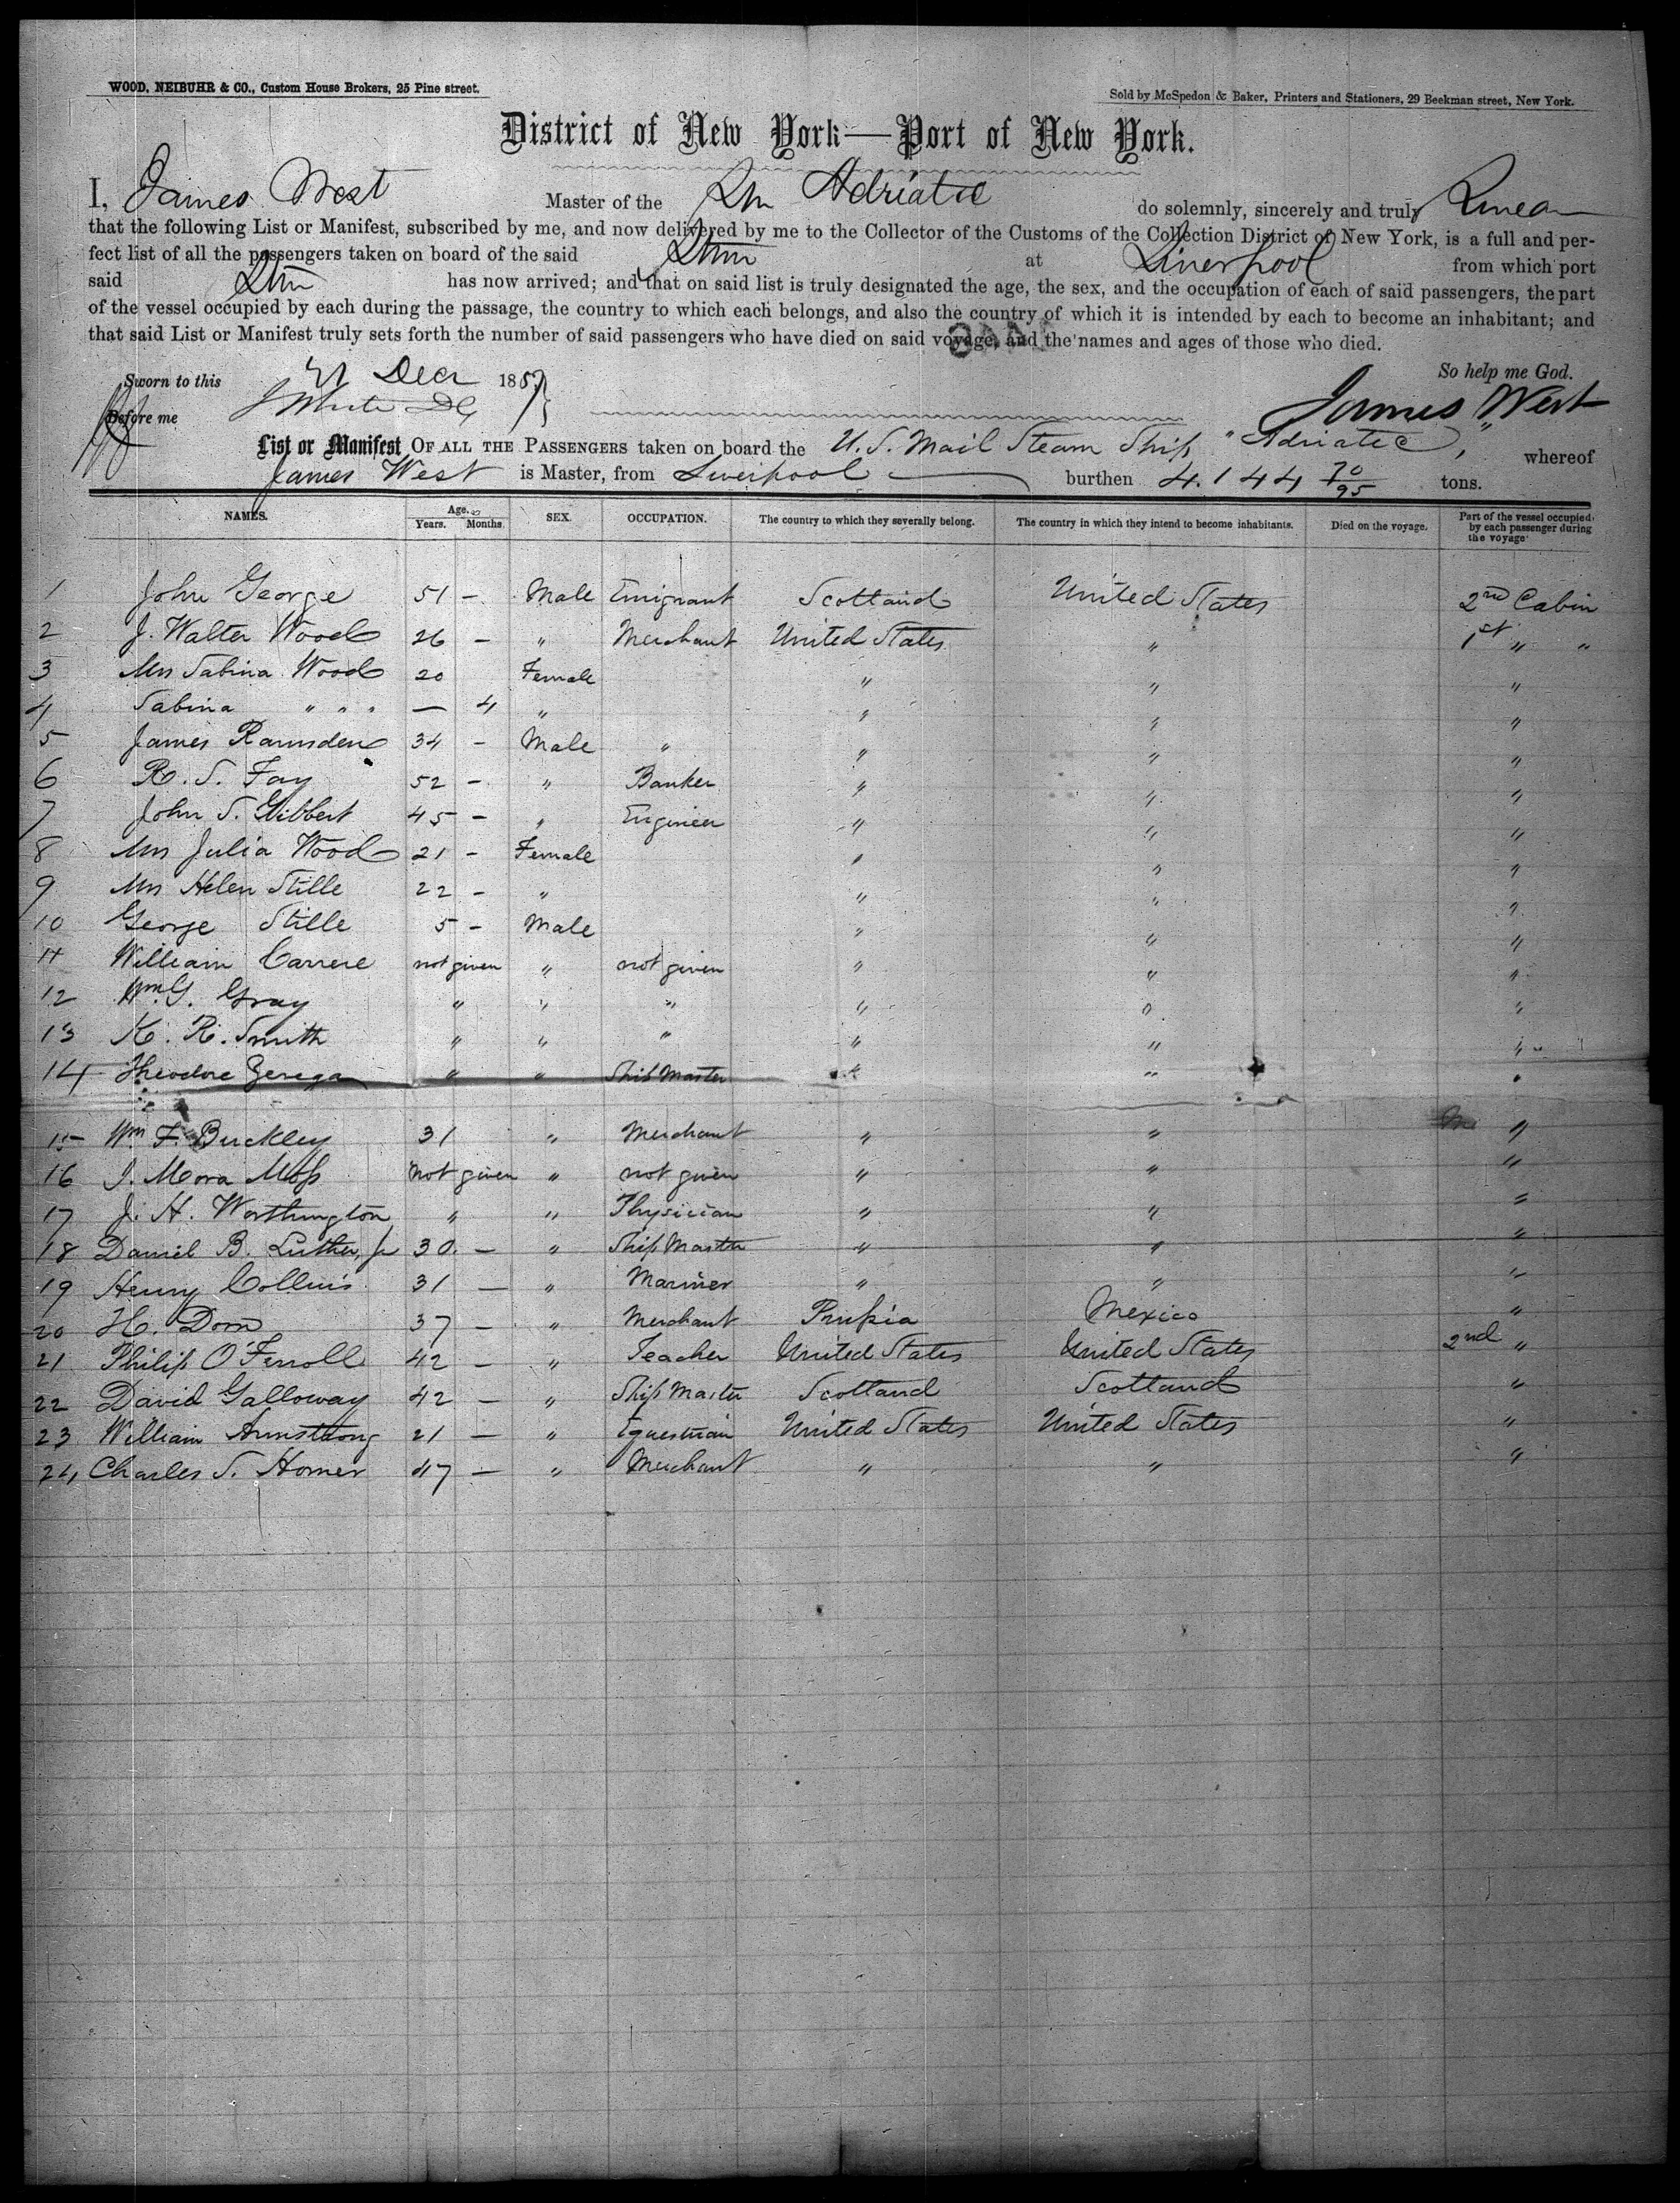 WOOD, NEIBUHR & CO., Custom House Brokers, 25 Pine street.
Sold by McSpedon & Baker, Printers and Stationers, 29 Beekman street, New York.
District of New York—Port of New York.
I, James West Master of the Adriatic do solemnly, sincerely and truly
that the following List or Manifest, subscribed by me, and now delivered by me to the Collector of the Customs of the Collection District of New York, is a full and per-
fect list of all the passengers taken on board of the said Stmr at Liverpool from which port
said Stmr has now arrived; and that on said list is truly designated the age, the sex, and the occupation of each of said passengers, the part
of the vessel occupied by each during the passage, the country to which each belongs, and also the country of which it is intended by each to become an inhabitant; and
that said List or Manifest truly sets forth the number of said passengers who have died on said voyage, and the names and ages of those who died.
Sworn to this Decr 185 So help me God.
Before me James West
List or Manifest OF ALL THE PASSENGERS taken on board the U.S. Mail Steam Ship "Adriatic", whereof
James West is Master, from Liverpool burthen 4.144 70/95 tons.
NAMES. Age. Years. Months. SEX. OCCUPATION. The country to which they severally belong. The country in which they intend to become inhabitants. Died on the voyage. Part of the vessel occupied by each passenger during the voyage
1 John George 51 - Male Emigrant Scotland United States 2nd Cabin
2 J. Walter Wood 26 - " Merchant United States " 1st " "
3 Mrs Sabina Wood 20 Female " " "
4 Sabina " " " — 4 " " " "
5 James Ramsden 34 - Male " " " "
6 R. S. Fay 52 - " Banker " " "
7 John S. Gibbert 45 - " Engineer " " "
8 Mrs Julia Wood 21 - Female " " "
9 Mrs Helen Stille 22 - " " " "
10 George Stille 5 - Male " " "
11 William Carrere not given " not given " " "
12 Wm G. Gray " " " " " "
13 K. R. Smith " " " " " "
14 Theodore Zerega " " Ship Master " " "
15 Wm F. Buckley 31 " Merchant " " "
16 J. Mora Moss not given " not given " " "
17 J. H. Worthington " " Physician " " "
18 Daniel B. Luther, Jr 30. — " Ship Master " " "
19 Henry Collins 31 — " Mariner " " "
20 H. Dorn 37 - " Merchant Prussia Mexico "
21 Philip O'Ferroll 42 - " Teacher United States United States 2nd "
22 David Galloway 42 - " Ship Master Scotland Scotland "
23 William Armstrong 21 - " Equestrian United States United States "
24 Charles S. Homer 47 — " Merchant " " "